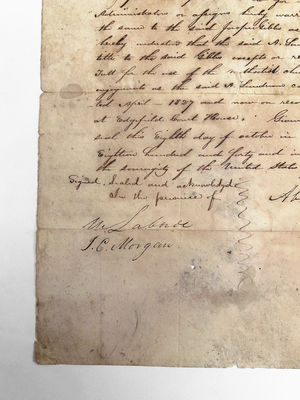 Administrators or assigns hereby war
the same to the said Gibbs as
hereby understood that the said A. Lan
title to the said Gibbs excepts or re
Tall for the use of the
as the said A. Landrum
ted April — 1837 and now on reco
at Edgefield Court House. Given
seal this Eighth day of october in
Eighteen hundred and forty and in
the sovereignty of the United State
Signed, Sealed and acknowledge
in the presence of
Ab
M Laborde
J. C. Morgan